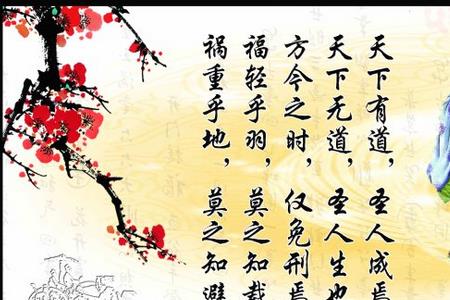 天下有道，圣人成焉
天下无道，圣人生也
方今之时，仅免刑焉
福轻乎羽，莫之知载
祸重乎地，莫之知避